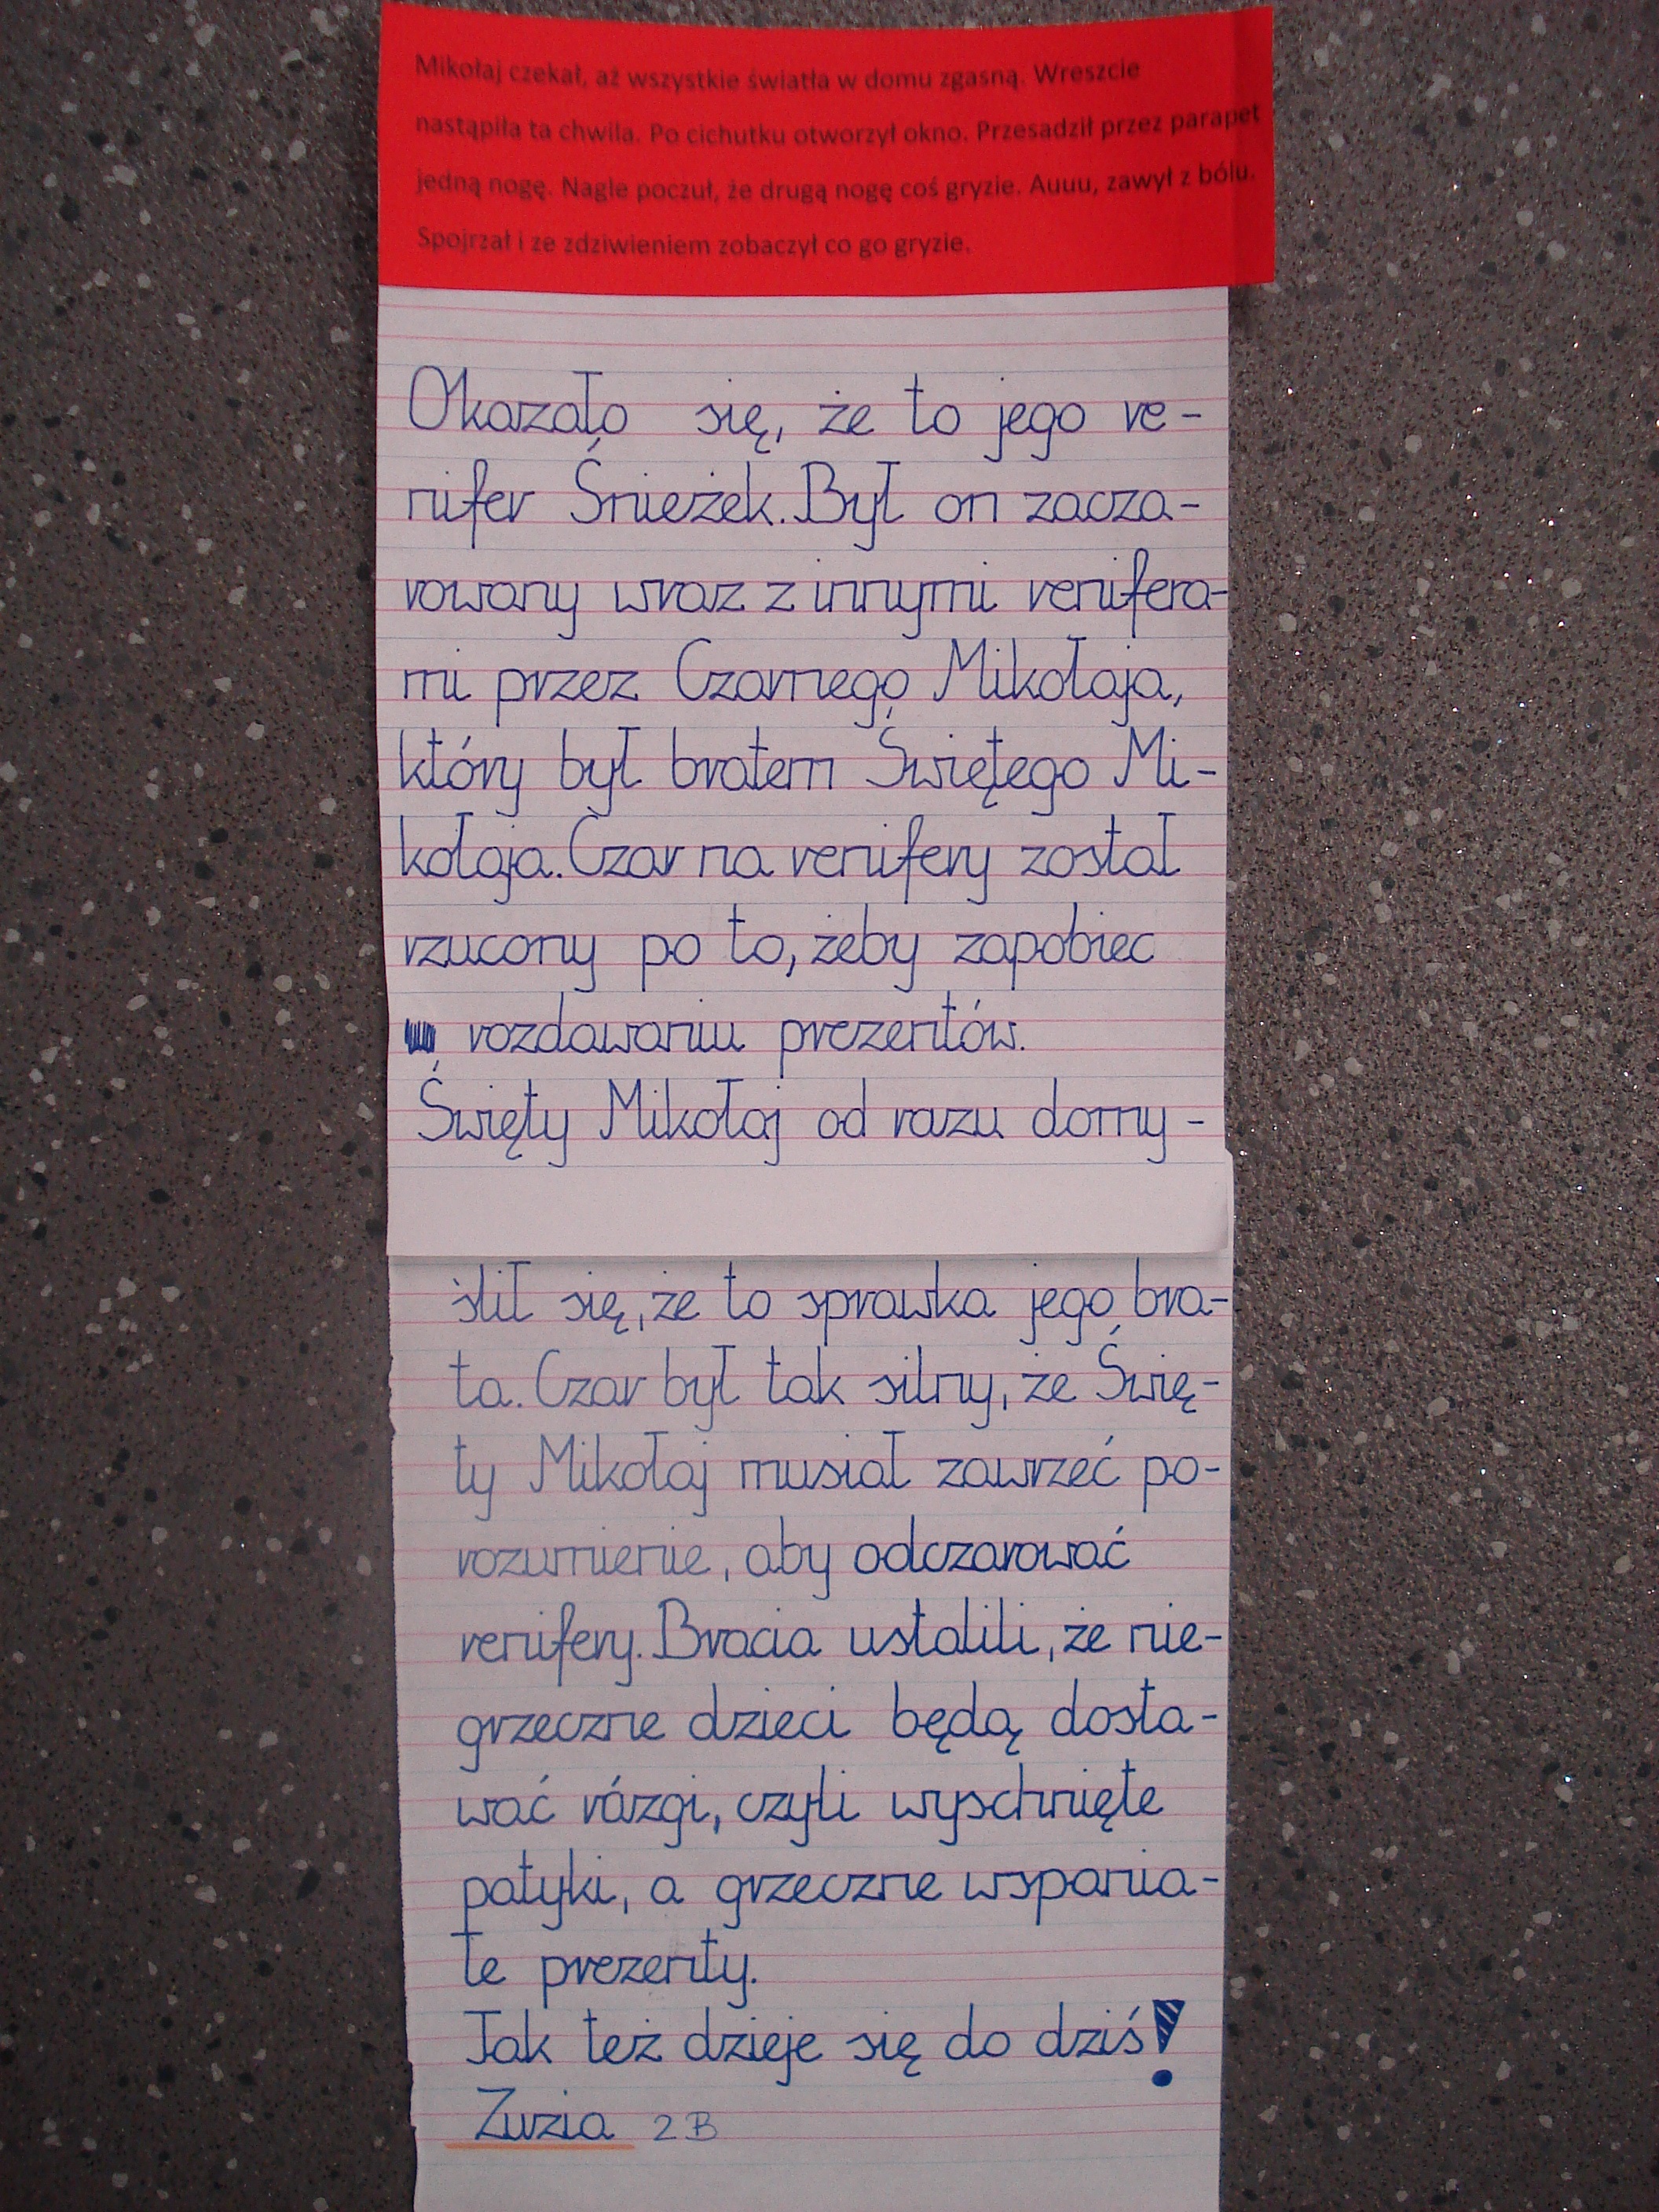 Mikołaj czekał, aż wszystkie światła w domu zgasną. Wreszcie
nastąpiła ta chwila. Po cichutku otworzył okno. Przesadził przez parapet
jedną nogę. Nagle poczuł, że drugą nogę coś gryzie. Auuu, zawył z bólu.
Spojrzał i ze zdziwieniem zobaczył co go gryzie.
Okazało się, że to jego re-
nifer Śnieżek. Był on zacza-
rowany wraz z innymi renifera-
mi przez Czarnego Mikołaja,
który był bratem Świętego Mi-
kołaja. Czar na renifery został
rzucony po to, żeby zapobiec
rozdawaniu prezentów.
Święty Mikołaj od razu domy-
ślił się, że to sprawka jego bra-
ta. Czar był tak silny, że Świę-
ty Mikołaj musiał zawrzeć po-
rozumienie, aby odczarować
renifery. Bracia ustalili, że nie-
grzeczne dzieci będą dosta-
wać rózgi, czyli wyschnięte
patyki, a grzeczne wspania-
łe prezenty.
Tak też dzieje się do dziś!
Zuzia 2B